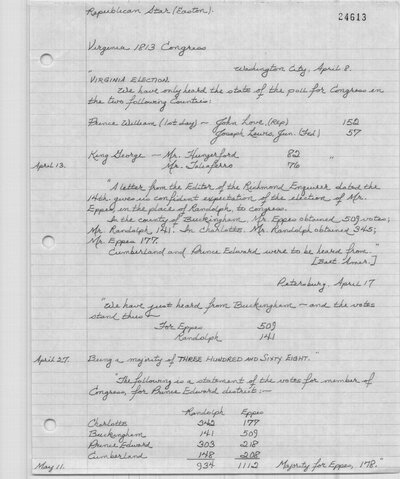 Republican Star (Easton).
24613
Virginia 1813 Congress
Washington City, April 8.
"VIRGINIA ELECTION.
We have only heard the state of the poll for Congress in
the two following Counties:
Prince William (1st day) - John Love, (Rep) 152
Joseph Lewis, Jun. (Fed) 57
King George - Mr. Hungerford 82 "
April 13. Mr. Taliaferro 76
"A letter from the Editor of the Richmond Enquirer dated the
14th gives us confident expectation of the election of Mr.
Eppes, in the place of Randolph, to Congress.
In the county of Buckingham, Mr. Eppes obtained 509 votes;
Mr. Randolph 141. In Charlotte, Mr. Randolph obtained 345;
Mr. Eppes 177.
Cumberland and Prince Edward were to be heard from."
[Balt. Amer.]
Petersburg, April 17
"We have just heard from Buckingham - and the votes
stand thus -
For Eppes 509
Randolph 141
April 27. Being a majority of THREE HUNDRED AND SIXTY EIGHT."
"The following is a statement of the votes for member of
Congress, for Prince Edward district: -
Randolph Eppes
Charlotte 342 177
Buckingham 141 509
Prince Edward 303 218
Cumberland 148 208
May 11. 934 1112 Majority for Eppes, 178."